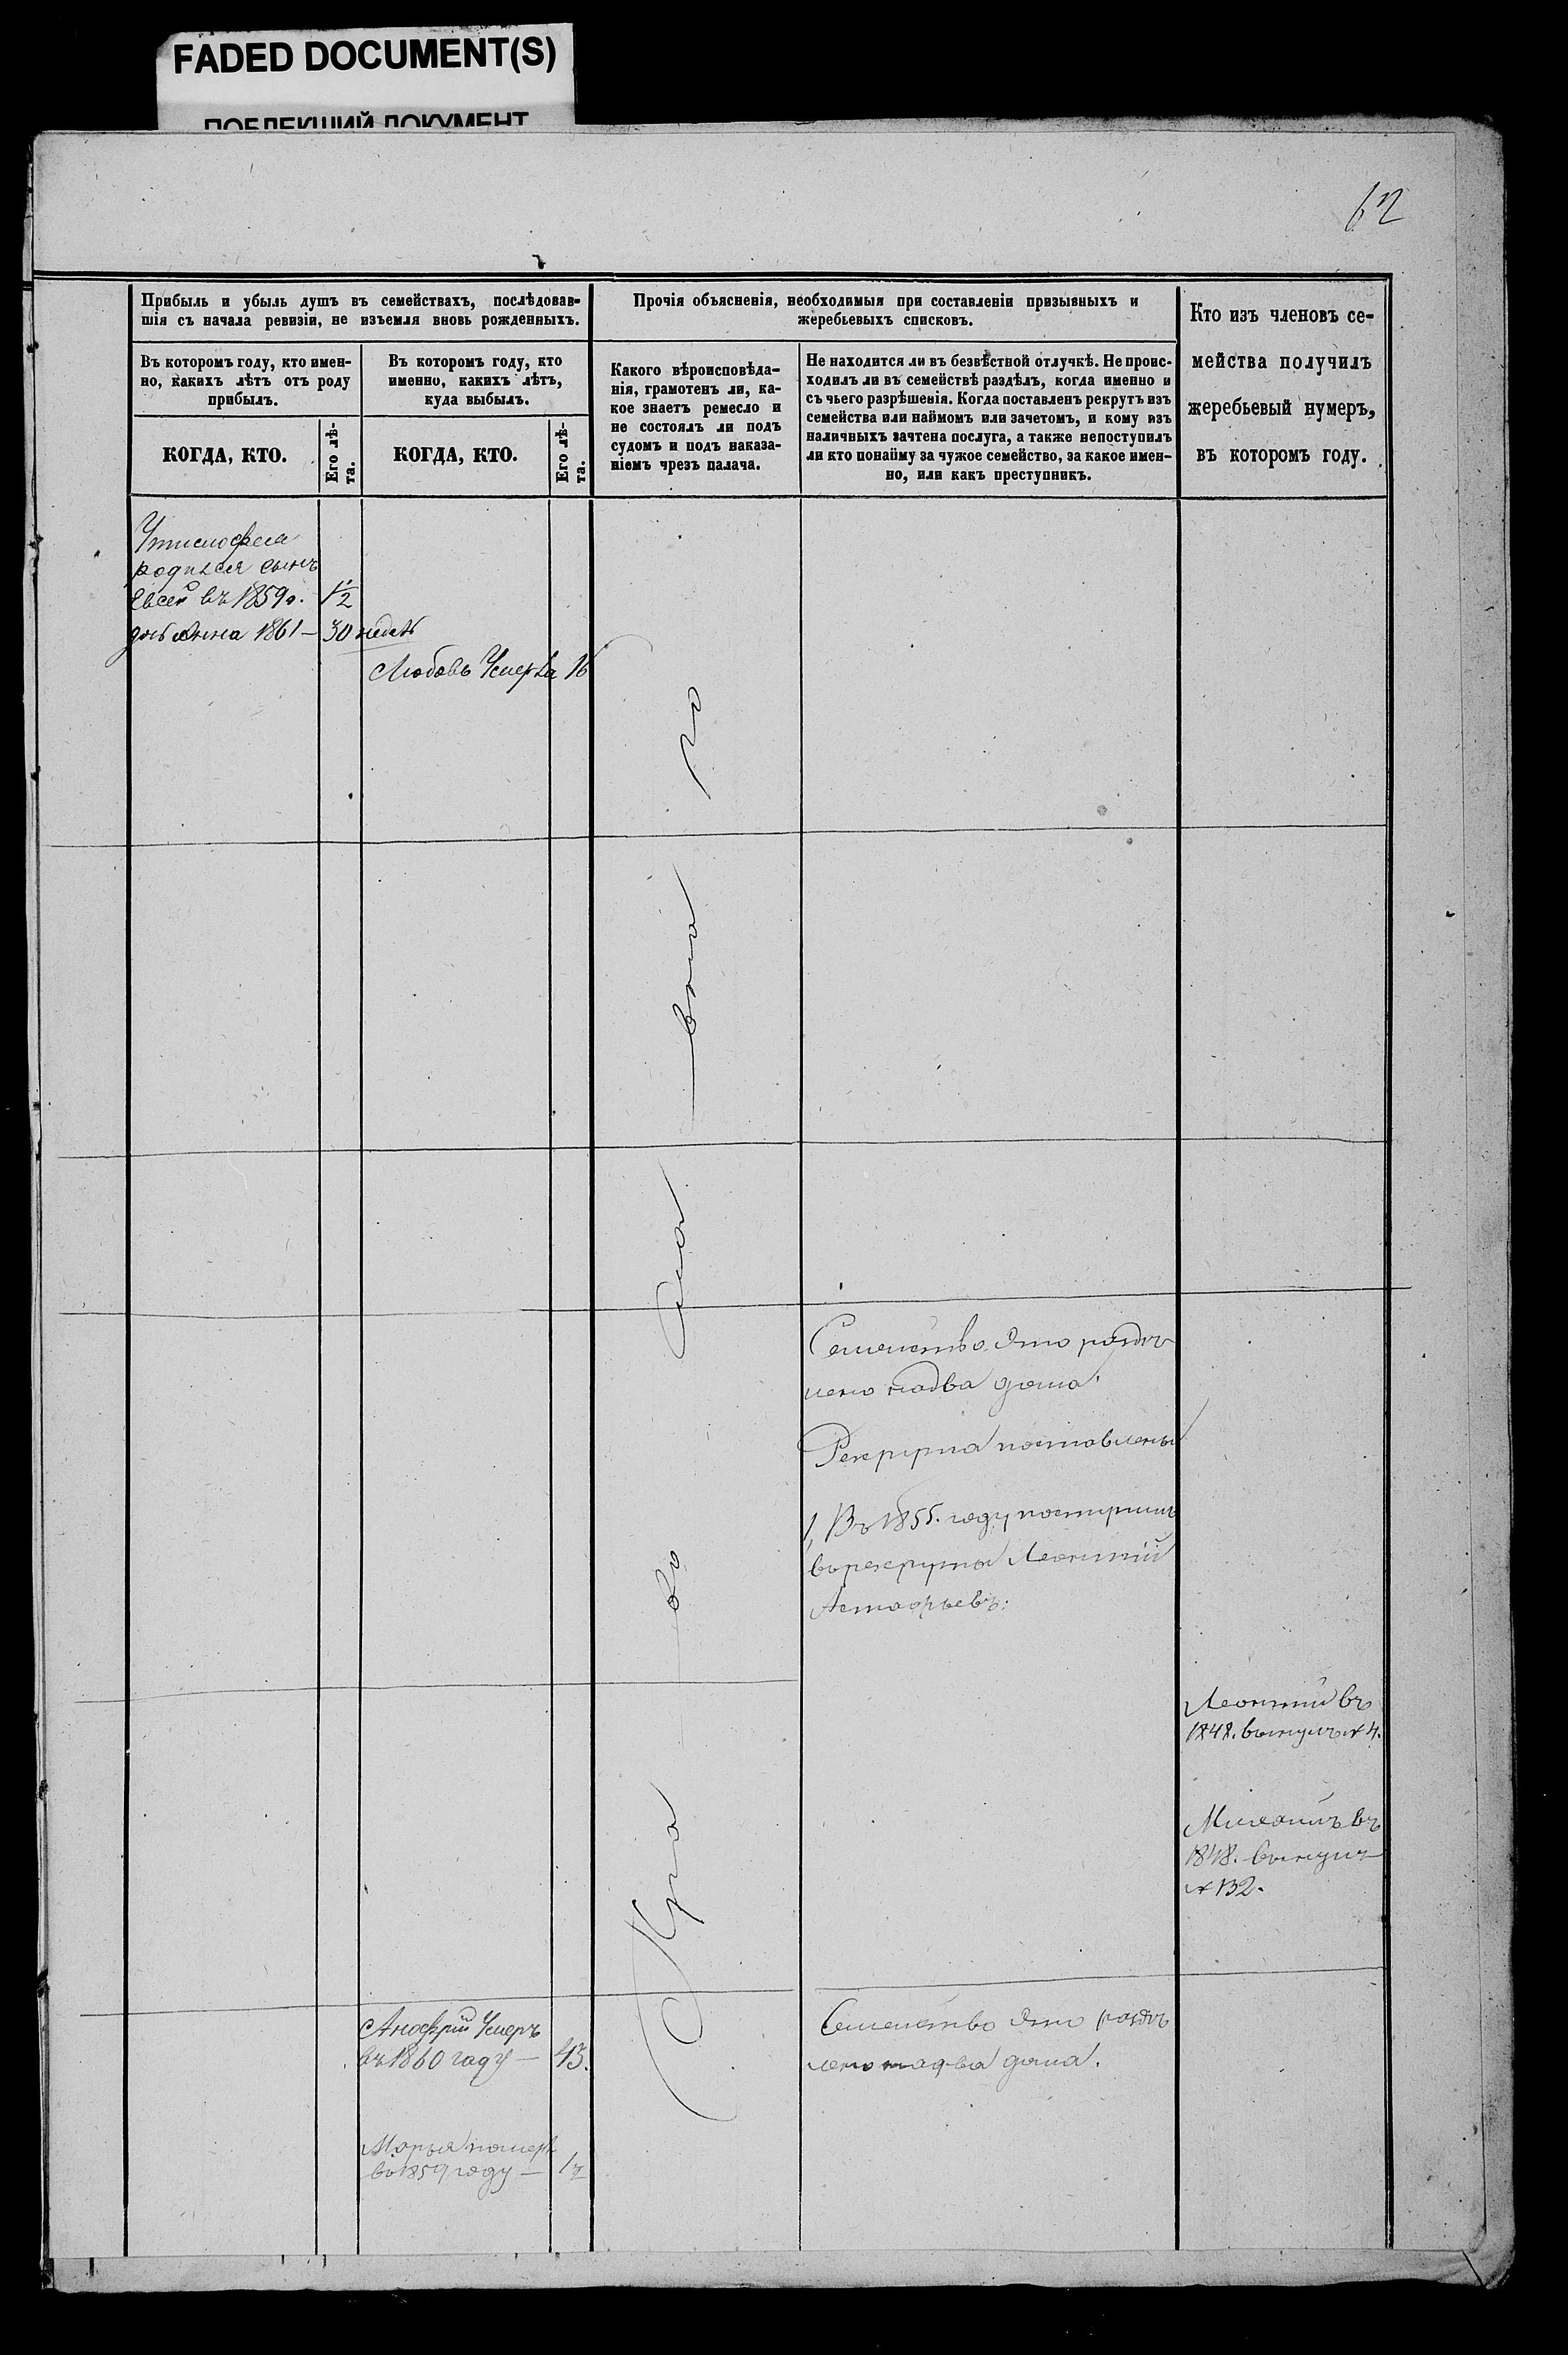 FADED DOCUMENT(S)
ПОБЛЕКШИЙ ДОКУМЕНТ
62
Прибыль и убыль душъ въ семействахъ, послѣдовав-
шія съ начала ревизіи, не изъемля вновь рожденныхъ.
Въ которомъ году, кто имен-
но, какихъ лѣтъ отъ роду
прибылъ.
КОГДА, КТО.
Его лѣ-
та.
Въ которомъ году, кто
именно, какихъ лѣтъ,
куда выбылъ.
КОГДА, КТО.
Его лѣ-
та.
Прочія объясненія, необходимыя при составленіи призывныхъ и
жеребьевыхъ списковъ.
Какого вѣроисповѣда-
нія, грамотенъ ли, ка-
кое знаетъ ремесло и
не состоялъ ли подъ
судомъ и подъ наказа-
ніемъ чрезъ палача.
Не находится ли въ безвѣстной отлучкѣ. Не проис-
ходилъ ли въ семействѣ раздѣлъ, когда именно и
съ чьего разрѣшенія. Когда поставленъ рекрутъ изъ
семейства или наймомъ или зачетомъ, и кому изъ
наличныхъ зачтена послуга, а также непоступилъ
ли кто понайму за чужое семейство, за какое имен-
но, или какъ преступникъ.
Кто изъ членовъ се-
мейства получилъ
жеребьевый нумеръ,
въ которомъ году.
родился сынъ
Евсей въ 1859 г. 1/2
дочь Анна 1861 – 30 недель
Любовь Умерла 16
Православнаго
Семейство это раздѣ
лено на два дома.
Рекрута поставлены
1, Въ 1855. году поступилъ
въ рекруты Леонтий
Астафьевъ.
Леонтий въ
1848. вынулъ № 4.
Михаилъ въ
1848. вынулъ
№ 132.
Анофрій Умеръ
въ 1860 году – 43.
Семейство это раздѣ
лено на два дома.
Марья померл
въ 1859 году – 1/2